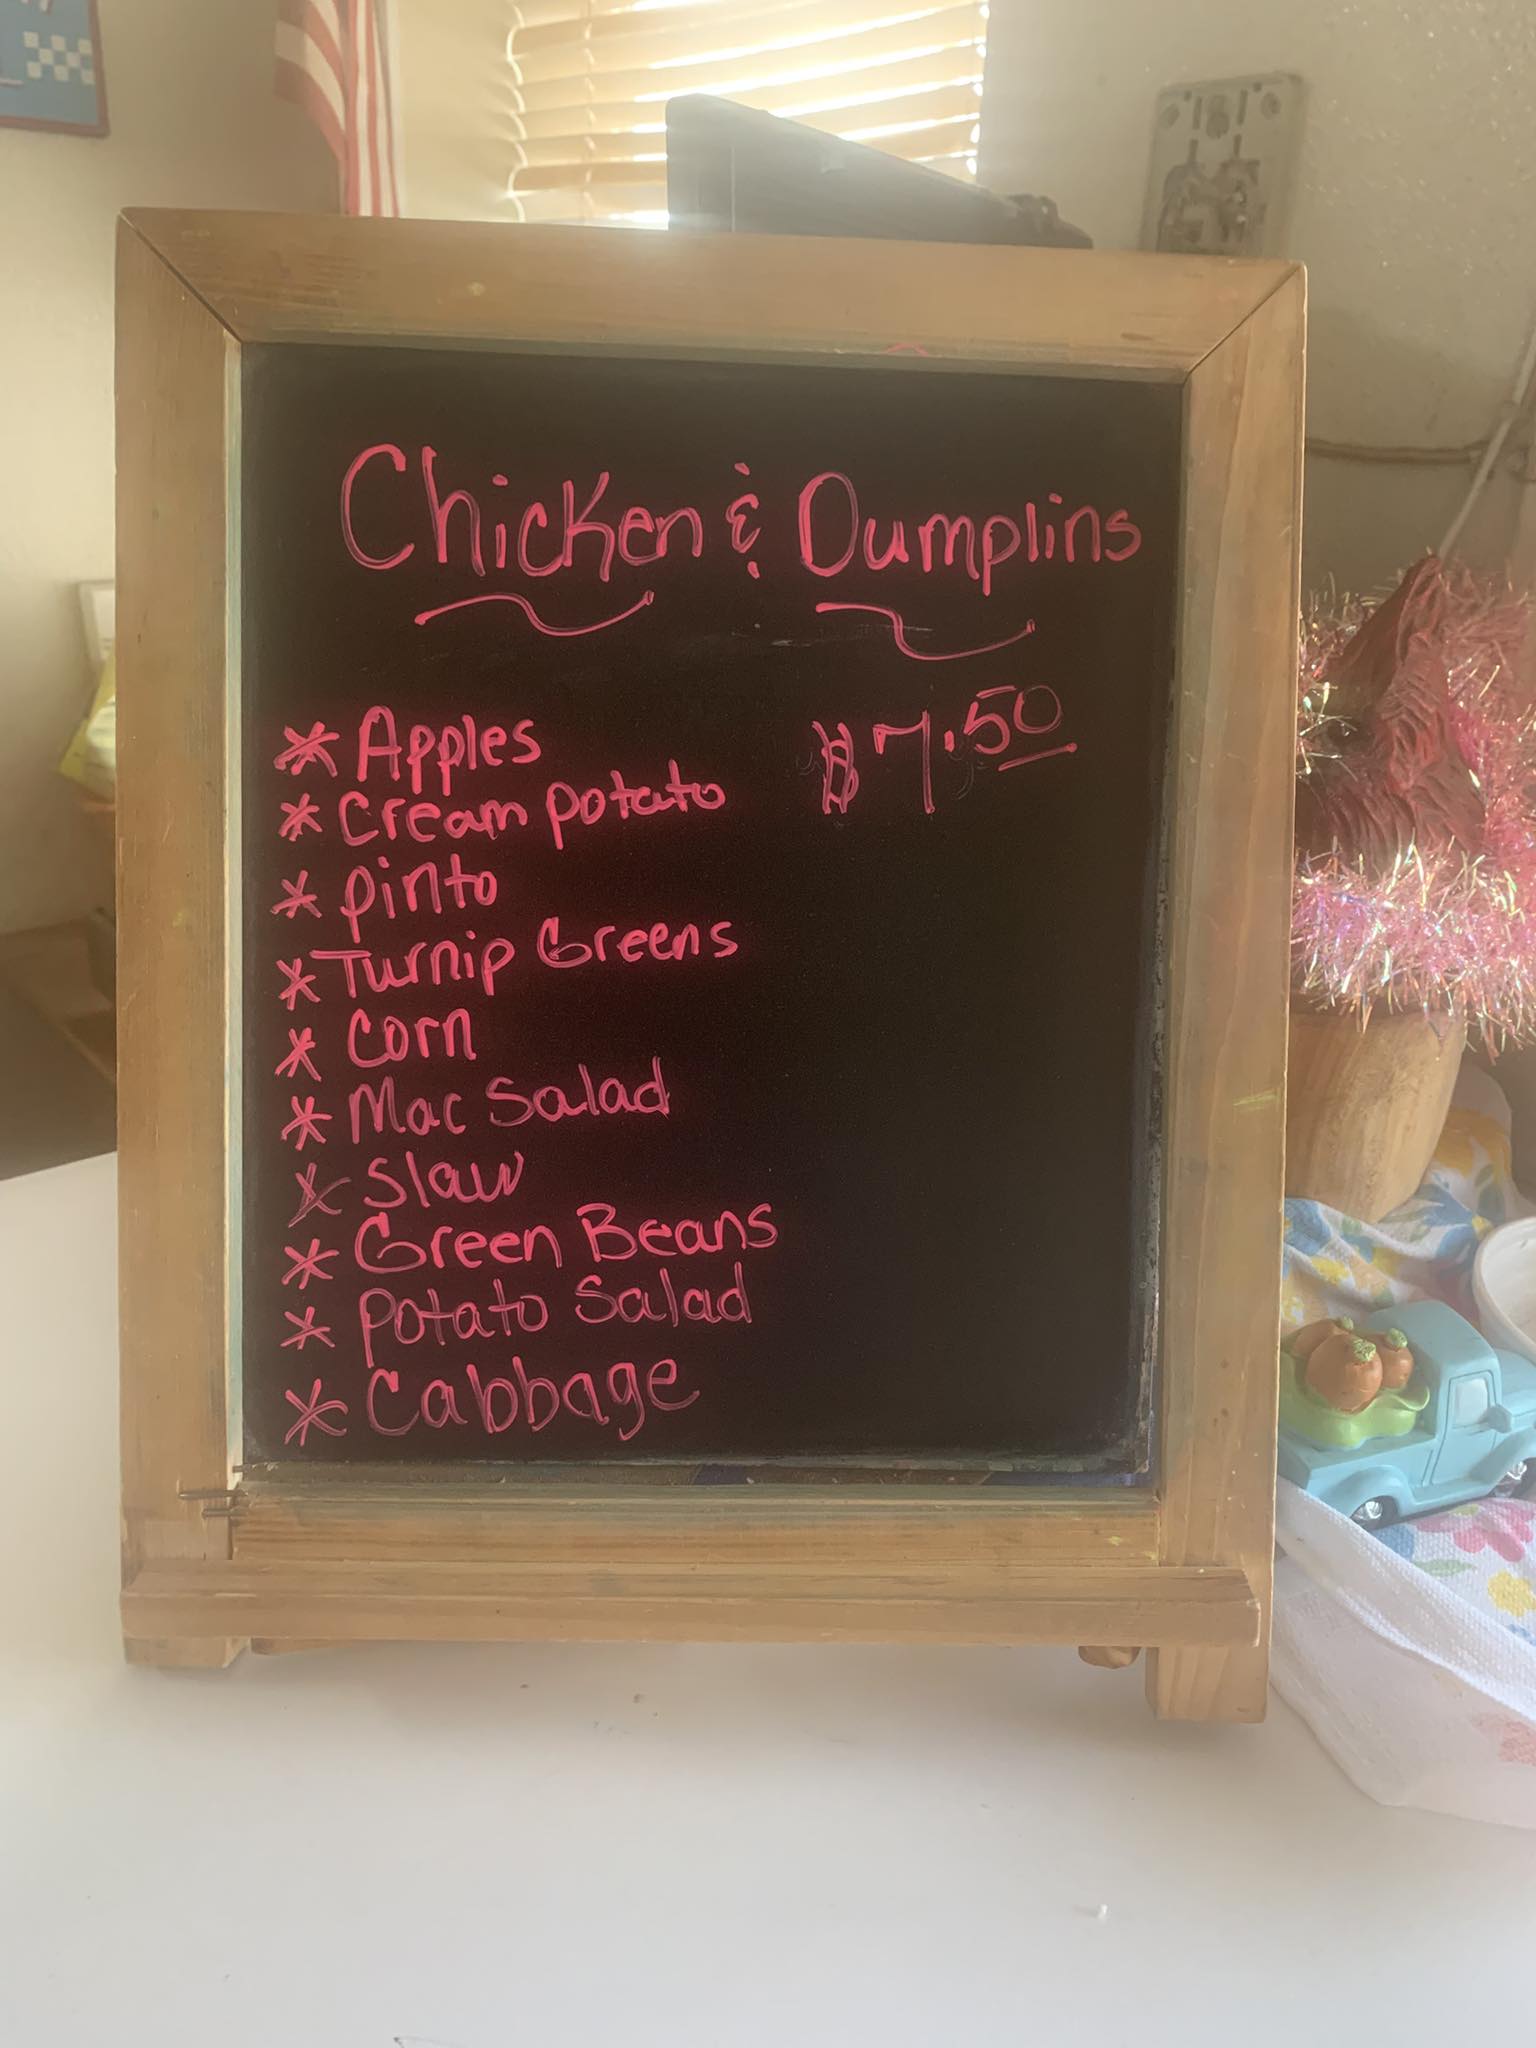 Chicken & Dumplins
$7.50
* Apples
* Cream potato
* pinto
* Turnip Greens
* Corn
* Mac Salad
* Slaw
* Green Beans
* Potato Salad
* Cabbage